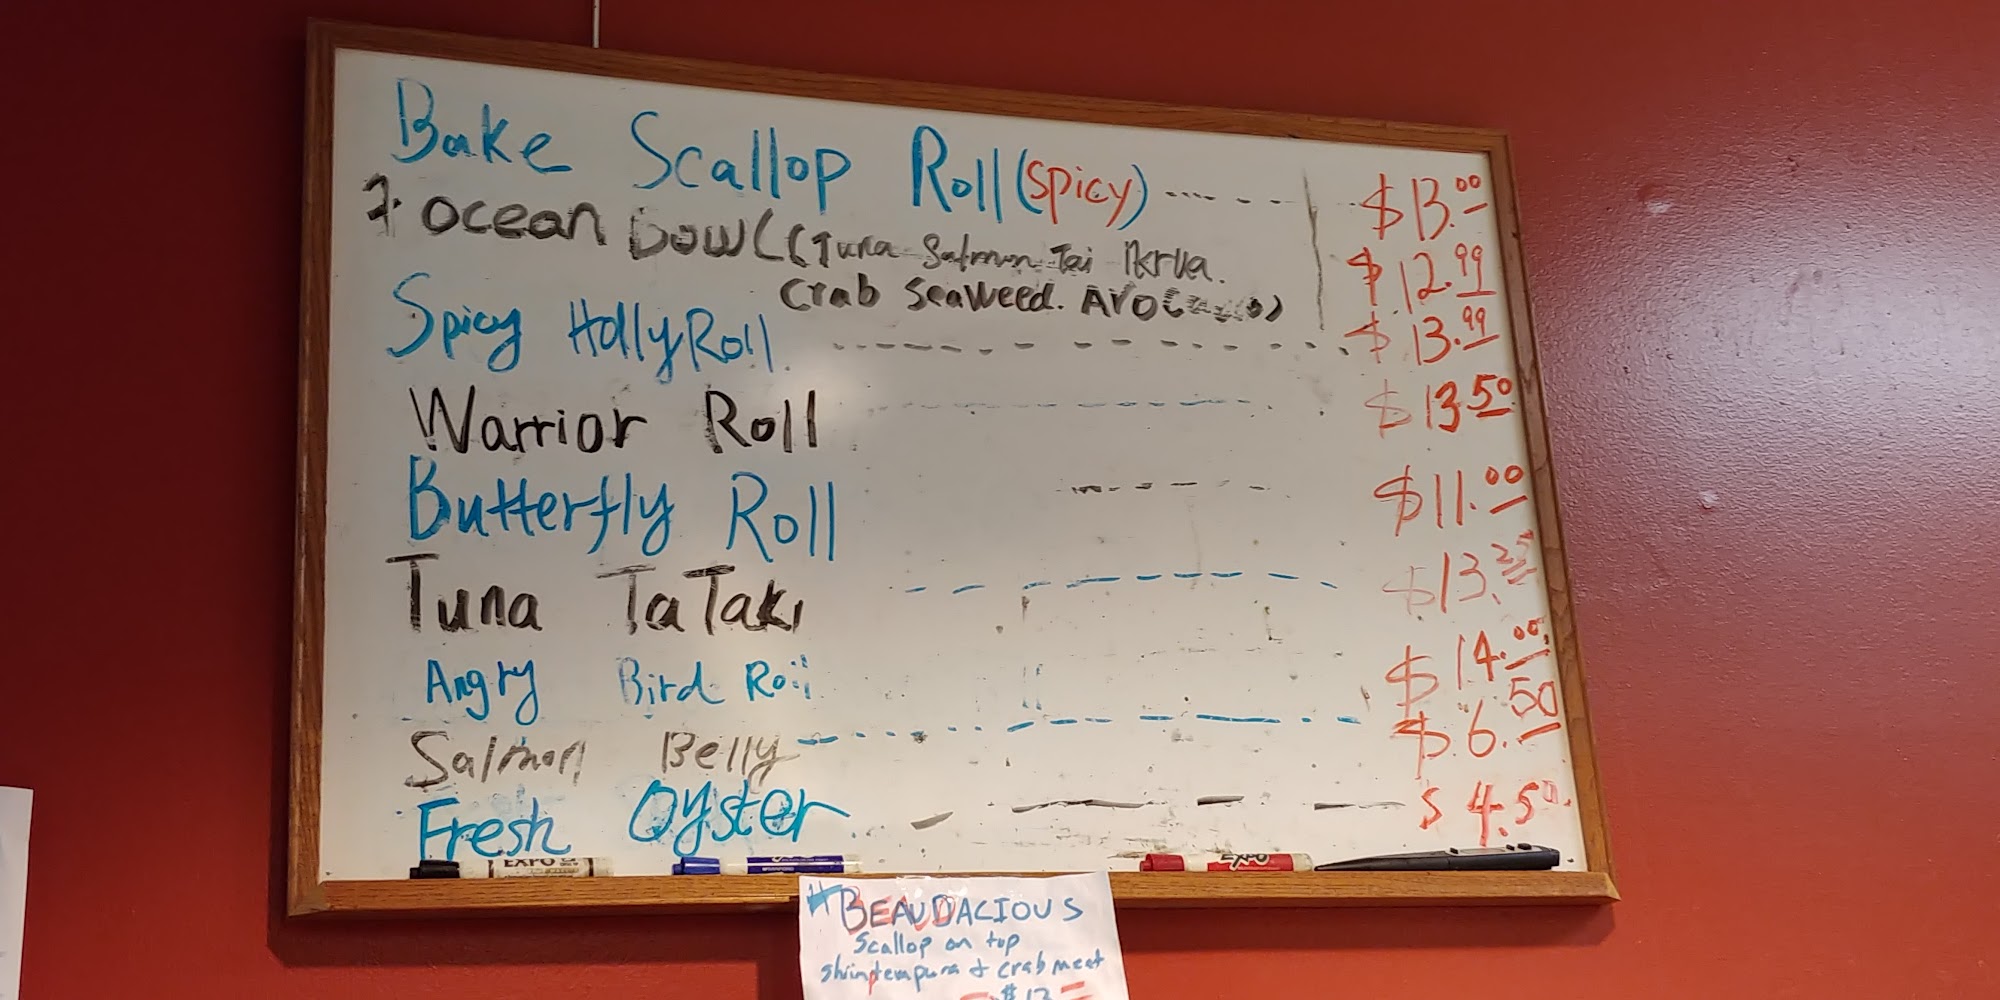 Bake Scallop Roll (spicy) $13.00
7. Ocean Bowl (Tuna Salmon Tai Ikrua. $12.99
Crab Seaweed. Avocado)
Spicy Holly Roll $13.99
Warrior Roll $13.50
Butterfly Roll $11.00
Tuna TaTaki $13.25
Angry Bird Roll $14.00
Salmon Belly $6.50
Fresh Oyster $4.50
EXPO
EXPO
#BEAUDACIOUS
Scallop on top
shrimptempura & crab meat